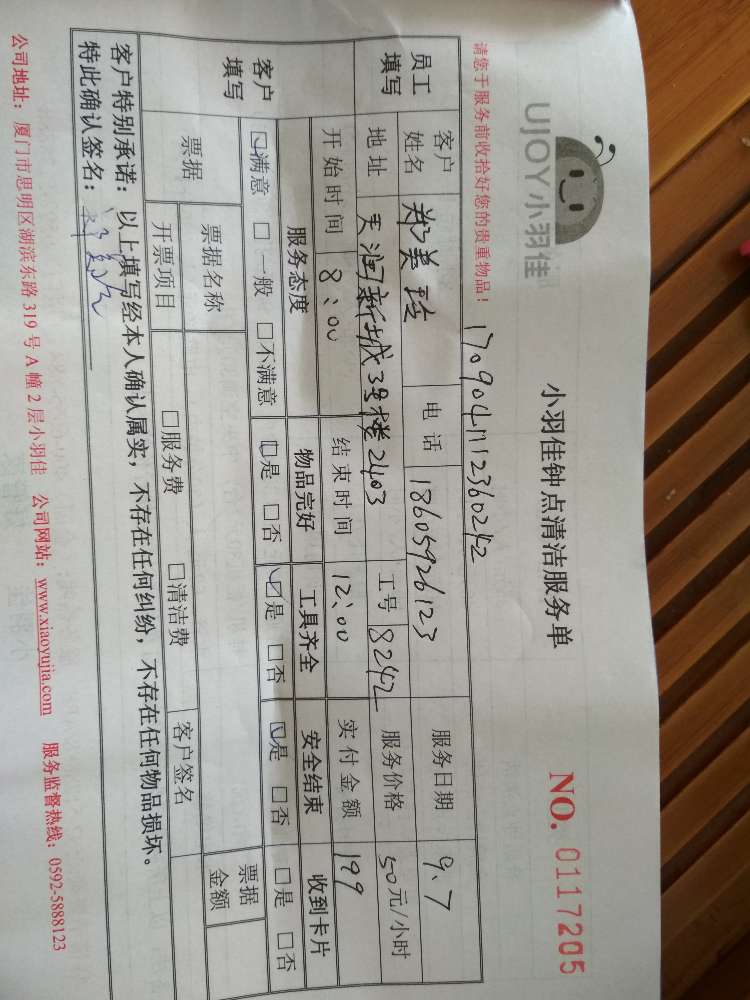 UJOY小羽佳
小羽佳钟点清洁服务单
NO. 0117205
请您于服务前收拾好您的贵重物品！
1709041112360242
员工填写 客户姓名 郑美玲 电话 18605926123 服务日期 9.7
地址 天润新城3号楼2403 工号 8242 服务价格 50元/小时
开始时间 8:00 结束时间 12:00 实付金额 199
客户填写 服务态度 物品完好 工具齐全 安全结束 收到卡片
☑满意 □一般 □不满意 ☑是 □否 ☑是 □否 ☑是 □否 □是 □否
票据 票据名称 票据金额
开票项目 □服务费 □清洁费 客户签名
客户特别承诺：以上填写经本人确认属实，不存在任何纠纷，不存在任何物品损坏。
特此确认签名：
公司地址：厦门市思明区湖滨东路319号A幢2层小羽佳 公司网站：www.xiaoyujia.com 服务监督热线：0592-5888123